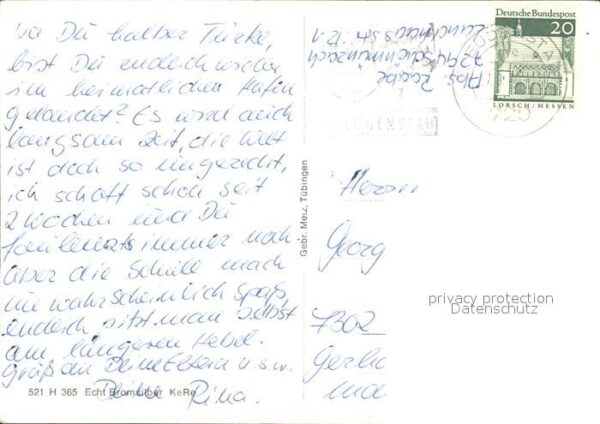 na Du halber Türke,
bist Du endlich wieder
im heimatlichen Hafen
gelandet? Es wird auch
langsam Zeit, die Welt
ist doch so ungerecht,
ich schaff schon seit
2 Wochen und Du
faulenzst immer noch
Aber die Schule mach
wahrscheinlich Spaß,
endlich sitzt man selbst
am längeren Hebel.
Grüß an Deine Eltern u.s.w.
Deine Rina.
521 H 365 Echt Bromsilber KeRe
Gebr. Metz, Tübingen
Abs.
Deutsche Bundespost
20
LORSCH/HESSEN
Herrn
Georg
7302
privacy protection
Datenschutz